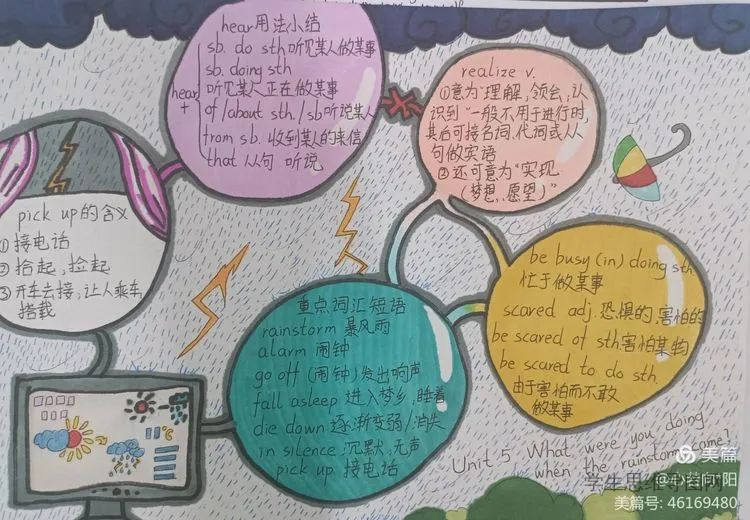 hear用法小结
hear
+
sb. do sth 听见某人做某事
sb. doing sth
听见某人正在做某事
of /about sth./sb 听说某人
from sb. 收到某人的来信
that 从句 听说
realize v.
①意为"理解,领会,认
识到"一般不用于进行时,
其后可接名词,代词或从
句做宾语
②还可意为"实现
(梦想,愿望)"
pick up的含义
①接电话
②拾起,捡起
③开车去接,让人乘车,
搭载
be busy (in) doing sth
忙于做某事
scared adj. 恐惧的,害怕的
be scared of sth.害怕某物
be scared to do sth.
由于害怕而不敢
做某事
重点词汇短语
rainstorm 暴风雨
alarm 闹钟
go off (闹钟)发出响声
fall asleep 进入梦乡,睡着
die down 逐渐变弱/消失
in silence 沉默,无声
pick up 接电话
Unit 5 What were you doing
when the rainstorm came?
美篇
美篇号: 46169480